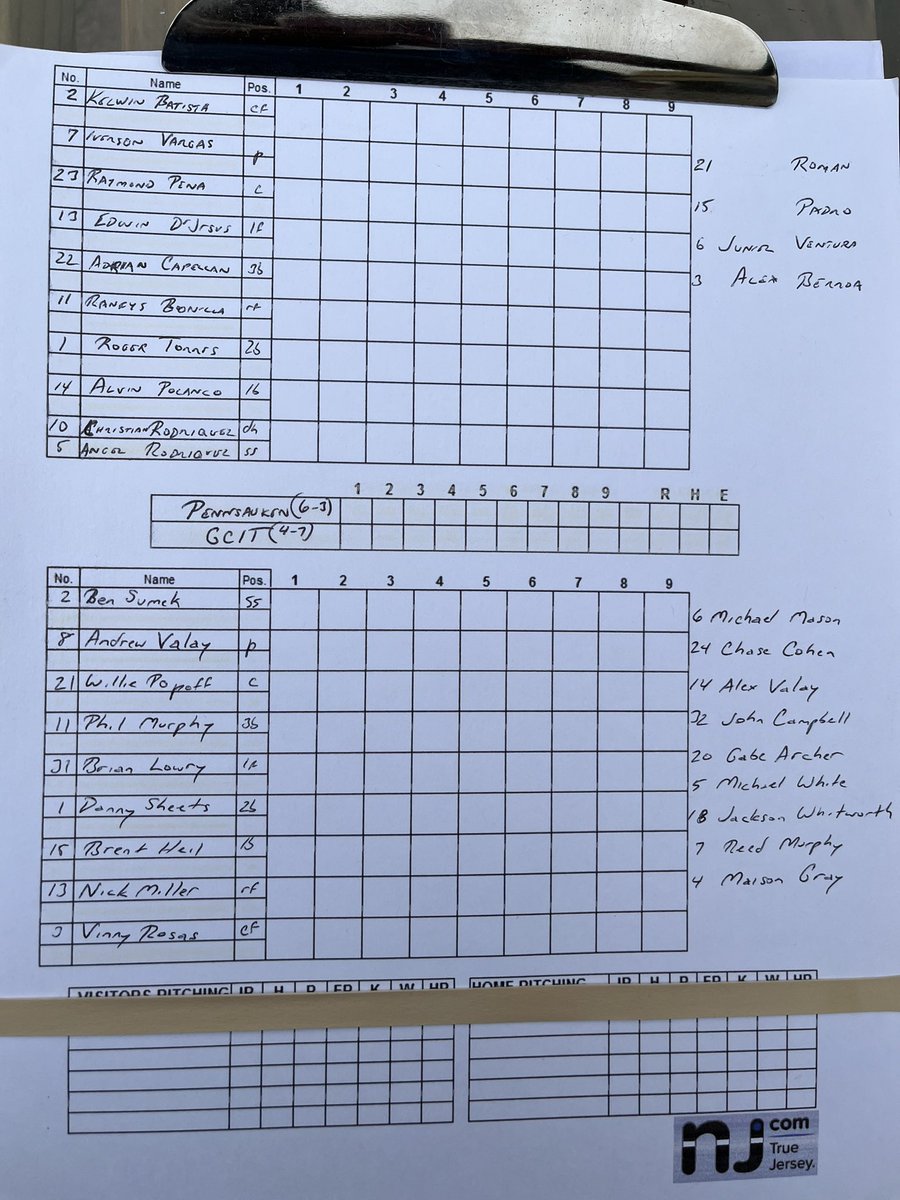 No. Name Pos. 1 2 3 4 5 6 7 8 9
2 Kelwin Batista cf
7 Iverson Vargas p
23 Raymond Pena c
13 Edwin DeJesus lf
22 Adrian Capellan 3b
11 Raneys Bonilla rf
1 Roger Torres 2b
14 Alvin Polanco 1b
10 Christian Rodriquez dh
5 Angel Rodriquez ss
21 Roman
15 Padro
6 Junior Ventura
3 Alex Berroa
1 2 3 4 5 6 7 8 9 R H E
Pennsauken (6-3)
GCIT (4-7)
No. Name Pos. 1 2 3 4 5 6 7 8 9
2 Ben Sumek ss
8 Andrew Valay p
21 Willie Popoff c
11 Phil Murphy 3b
31 Brian Lowry lf
1 Danny Sheets 2b
15 Brent Heil 1b
13 Nick Miller rf
3 Vinny Rosas cf
6 Michael Mason
24 Chase Cohen
14 Alex Valay
32 John Campbell
20 Gabe Archer
5 Michael White
18 Jackson Whitworth
7 Reed Murphy
4 Maison Gray
VISITORS PITCHING IP H R ER K W HP
HOME PITCHING IP H R ER K W HP
nj.com
True
Jersey.